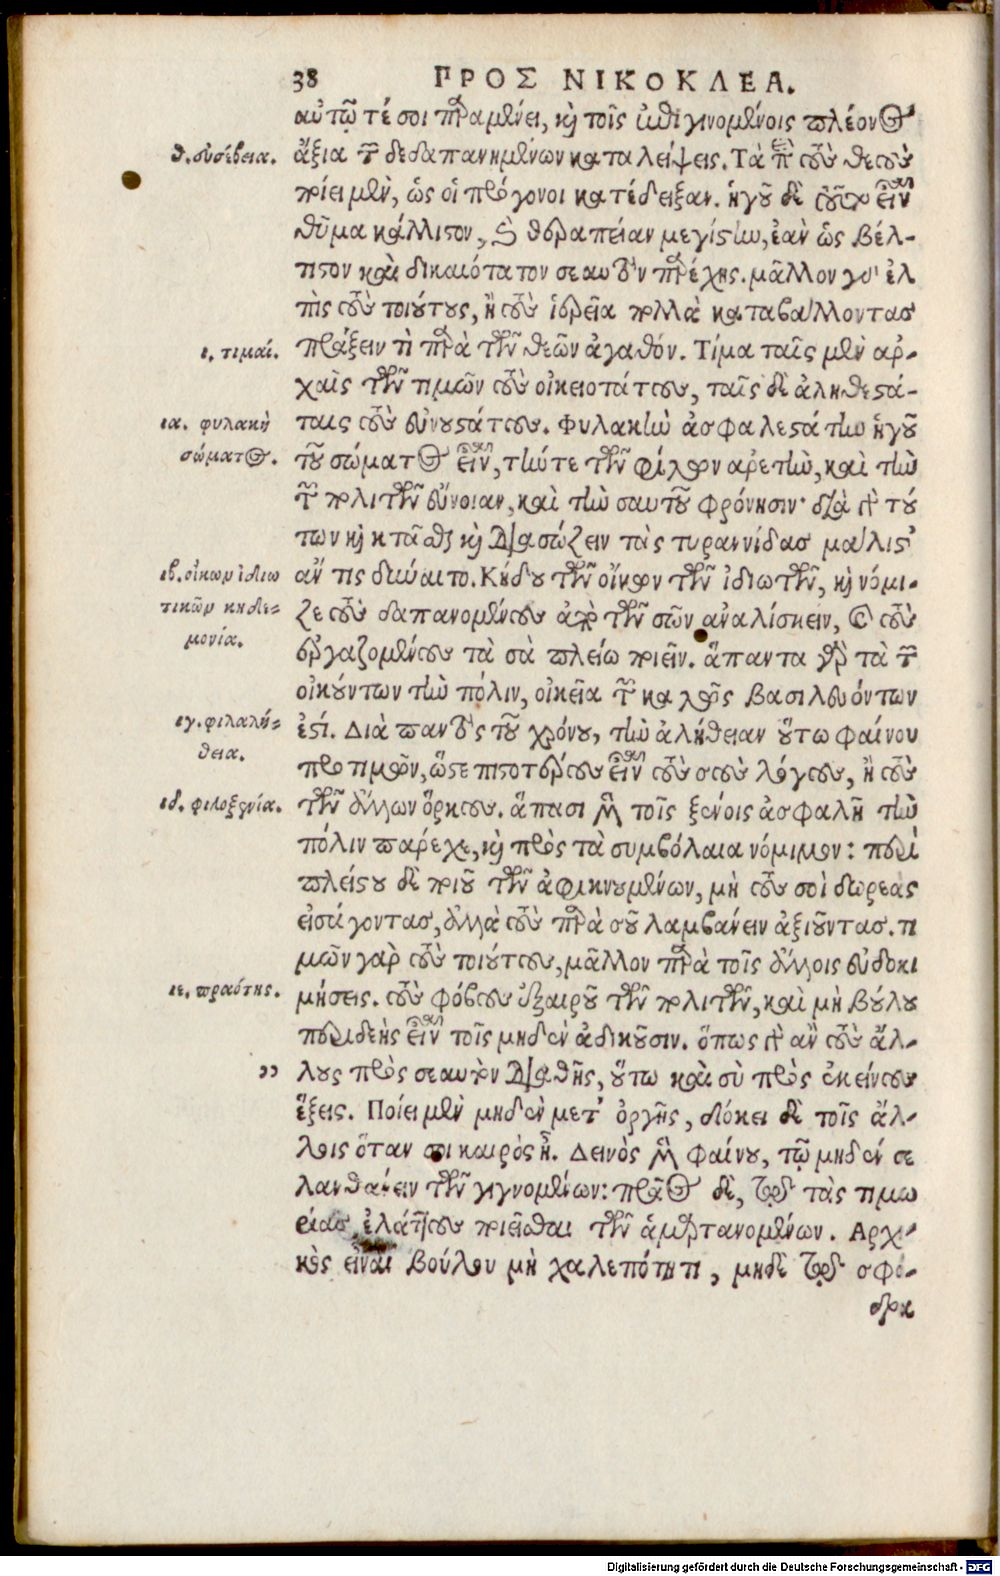 38 ΠΡΟΣ ΝΙΚΟΚΛΕΑ.
αὐτῷ τέ σοι παραμένει, καὶ τοῖς ἐπιγινομένοις πλέονος
θ. εὐσέβεια.
ἄξια τῶν δεδαπανημένων καταλείψεις. Τὰ περὶ τοὺς θεοὺς
ποίει μὲν, ὡς οἱ πρόγονοι κατέδειξαν. ἡγοῦ δὲ τοῦτο εἶναι
θῦμα κάλλιστον, καὶ θεραπείαν μεγίστην, ἐὰν ὡς βέλ-
τιστον καὶ δικαιότατον σεαυτὸν παρέχης. μᾶλλον γὰρ ἐλ
πὶς τοὺς τοιούτους, ἢ τοὺς ἱερεῖα πολλὰ καταβάλλοντας
ι. τιμαί.
πράξειν τὶ παρὰ τῶν θεῶν ἀγαθόν. Τίμα ταῖς μὲν ἀρ-
χαῖς τῶν τιμῶν τοὺς οἰκειοτάτους, ταῖς δὲ ἀληθεστά-
ια. φυλακὴ
ταις τοὺς εὐνουστάτους. Φυλακὴν ἀσφαλεστάτην ἡγοῦ
σώματος.
τοῦ σώματος εἶναι, τήν τε τῶν φίλων ἀρετὴν, καὶ τὴν
τῶν πολιτῶν εὔνοιαν, καὶ τὴν σαυτοῦ φρόνησιν· διὰ γὰρ τού
των καὶ κτᾶσθαι καὶ διασώζειν τὰς τυραννίδας μάλιστ'
ιβ. οἴκων ἰδιω
ἄν τις δύναιτο. Κήδου τῶν οἴκων τῶν ἰδιωτῶν, καὶ νόμι-
τικῶν κηδε-
ζε τοὺς δαπανομένους ἀπὸ τῶν σῶν ἀναλίσκειν, καὶ τοὺς
μονία.
ἐργαζομένους τὰ σὰ πλείω ποιεῖν. ἅπαντα γὰρ τὰ τῶν
οἰκούντων τὴν πόλιν, οἰκεῖα τῶν καλῶς βασιλευόντων
ιγ. φιλαλή-
ἐστί. Διὰ παντὸς τοῦ χρόνου, τὴν ἀλήθειαν οὕτω φαίνου
θεια.
προτιμῶν, ὥστε πιστοτέρους εἶναι τοὺς σοὺς λόγους, ἢ τοὺς
ιδ. φιλοξενία.
τῶν ἄλλων ὅρκους. ἅπασι μὲν τοῖς ξένοις ἀσφαλῆ τὴν
πόλιν πάρεχε, καὶ πρὸς τὰ συμβόλαια νόμιμον: περὶ
πλείστου δὲ ποιοῦ τῶν ἀφικνουμένων, μὴ τούς σοὶ δωρεὰς
εἰσάγοντας, ἀλλὰ τοὺς παρὰ σοῦ λαμβάνειν ἀξιοῦντας. τι
μῶν γὰρ τοὺς τοιούτους, μᾶλλον παρὰ τοῖς ἄλλοις εὐδοκι
ιε. πραότης.
μήσεις. τοὺς φόβους ἐξαιροῦ τῶν πολιτῶν, καὶ μὴ βούλου
περιδεὴς εἶναι τοῖς μηδὲν ἀδικοῦσιν. ὅπως γὰρ ἂν τοὺς ἄλ-
„ λους πρὸς σεαυτὸν διαθῇς, οὕτω καὶ σὺ πρὸς ἐκείνους
ἕξεις. Ποίει μὲν μηδὲν μετ' ὀργῆς, δόκει δὲ τοῖς ἄλ-
λοις ὅταν σοι καιρὸς ᾖ. Δεινὸς μὲν φαίνου, τῷ μηδέν σε
λανθάνειν τῶν γιγνομένων: πρᾶος δὲ, τῷ τὰς τιμω
ρίας ἐλάττους ποιεῖσθαι τῶν ἁμαρτανομένων. Ἀρχι-
κὸς εἶναι βούλου μὴ χαλεπότητι, μηδὲ τῷ σφό-
δρα
Digitalisierung gefördert durch die Deutsche Forschungsgemeinschaft - DFG